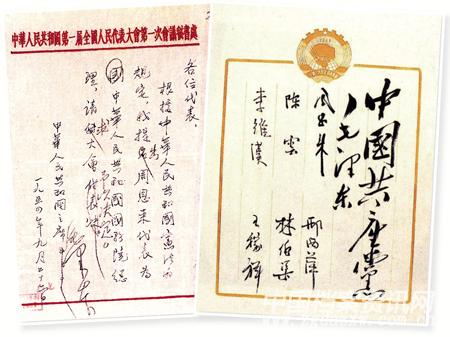 中華人民共和國第一届全國人民代表大會第一次會議秘書處
各位代表：
根據中華人民共和國憲法的
規定，我提 周恩来代表為
國中華人民共和國國務院總
理，請 大會
中華人民共和國主席
一九五四年九月二十 日
1949
中國共產黨
毛澤东
邢西萍
林伯渠
王稼祥
陳雲
李維漢